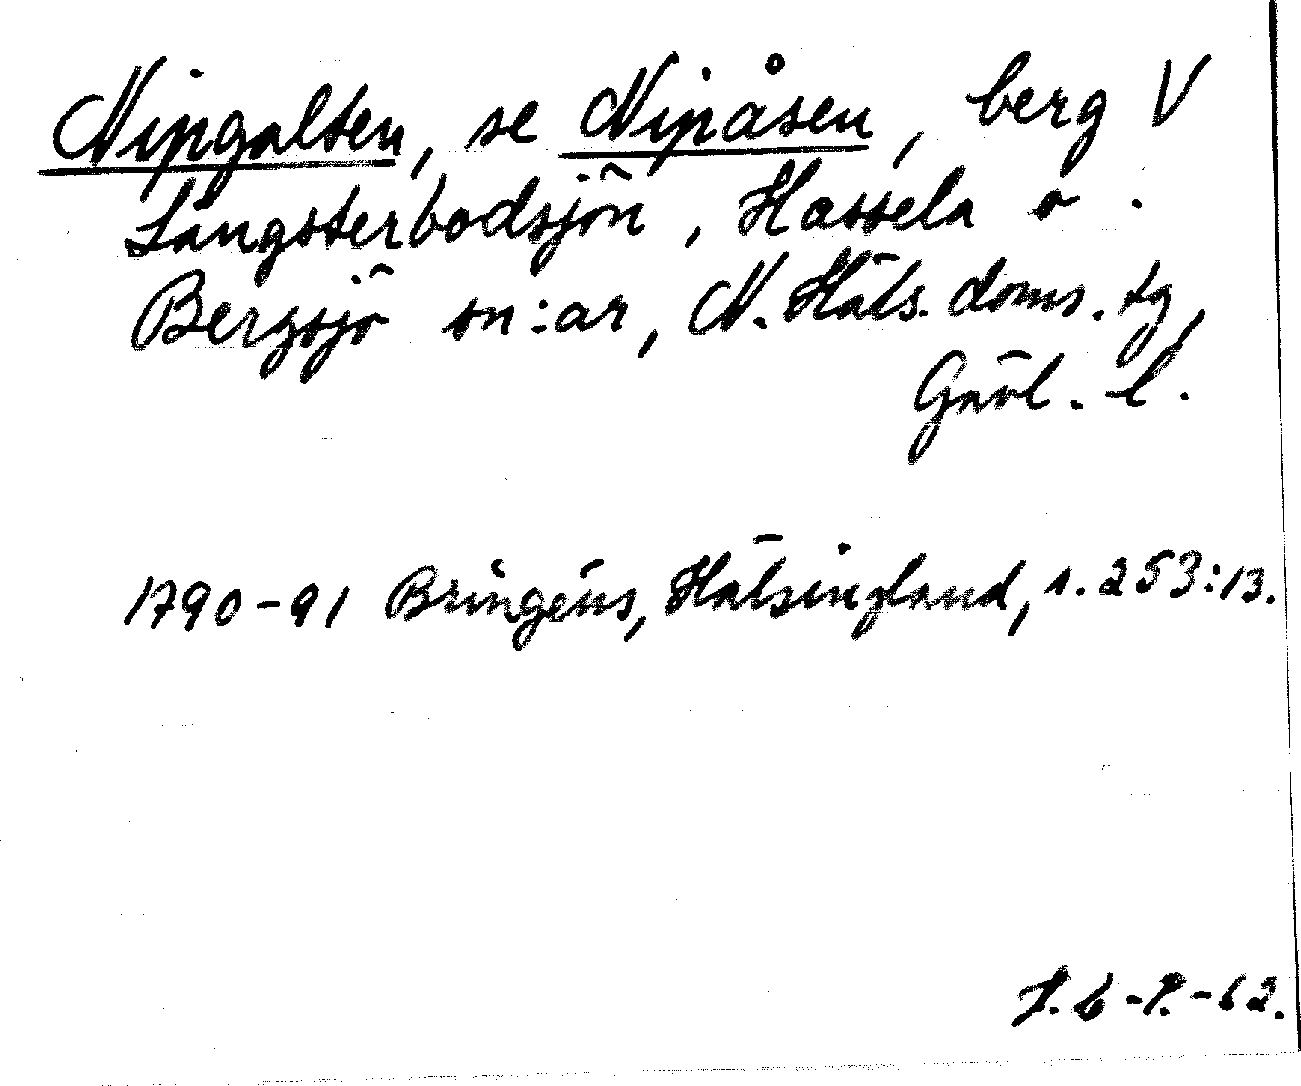 Nipgalten, se Nipåsen, berg V
Långsterbodsjön, Hassela o.
Bergsjö sn:ar, N. Häls. doms. tg,
Gävl. l.
1790-91 Bringéus, Hälsingland, s. 253:13.
-62.